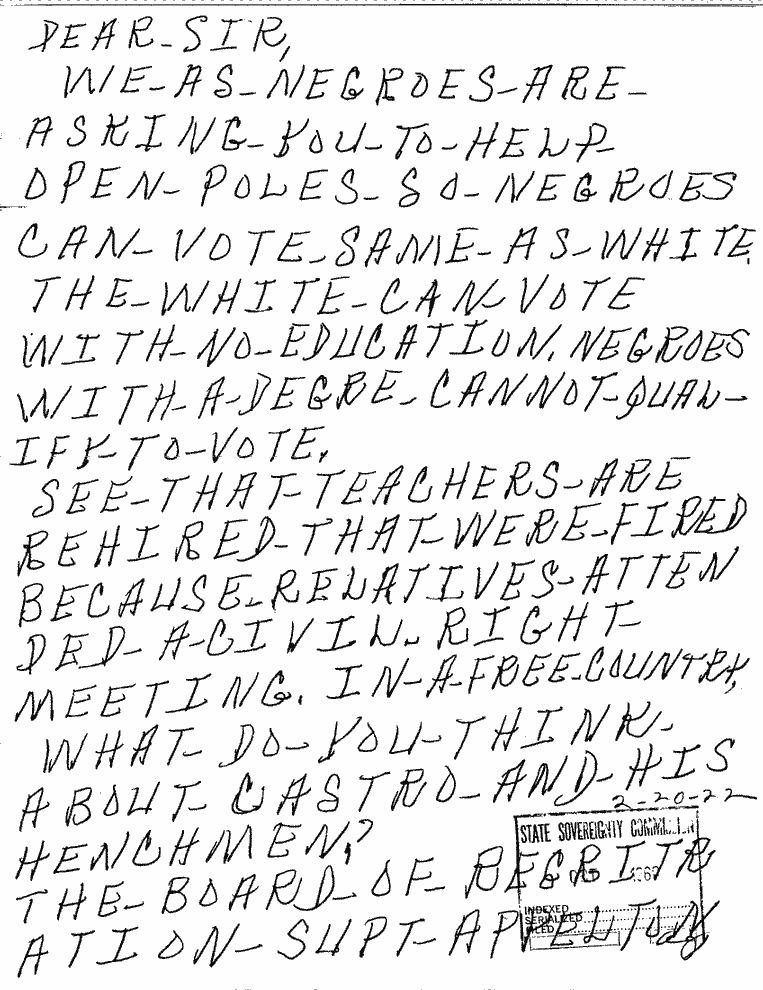 DEAR-SIR,
WE-AS-NEGROES-ARE-
ASKING-YOU-TO-HELP-
OPEN-POLES-SO-NEGROES
CAN-VOTE-SAME-AS-WHITE.
THE-WHITE-CAN-VOTE
WITH-NO-EDUCATION. NEGROES
WITH-A-DEGRE-CANNOT-QUAL-
IFY-TO-VOTE.
SEE-THAT-TEACHERS-ARE
REHIRED-THAT-WERE-FIRED
BECAUSE-RELATIVES-ATTEN
DED-A-CIVIL-RIGHT-
MEETING. IN-A-FREE-COUNTRY,
WHAT-DO-YOU-THINK-
ABOUT-CASTRO-AND-HIS
2-20-22
HENCHMEN?
STATE SOVEREIGNTY
THE-BOARD-OF-REGRITR
INDEXED
SERIALIZED
FILED
ATION-SUPT-APPELTON